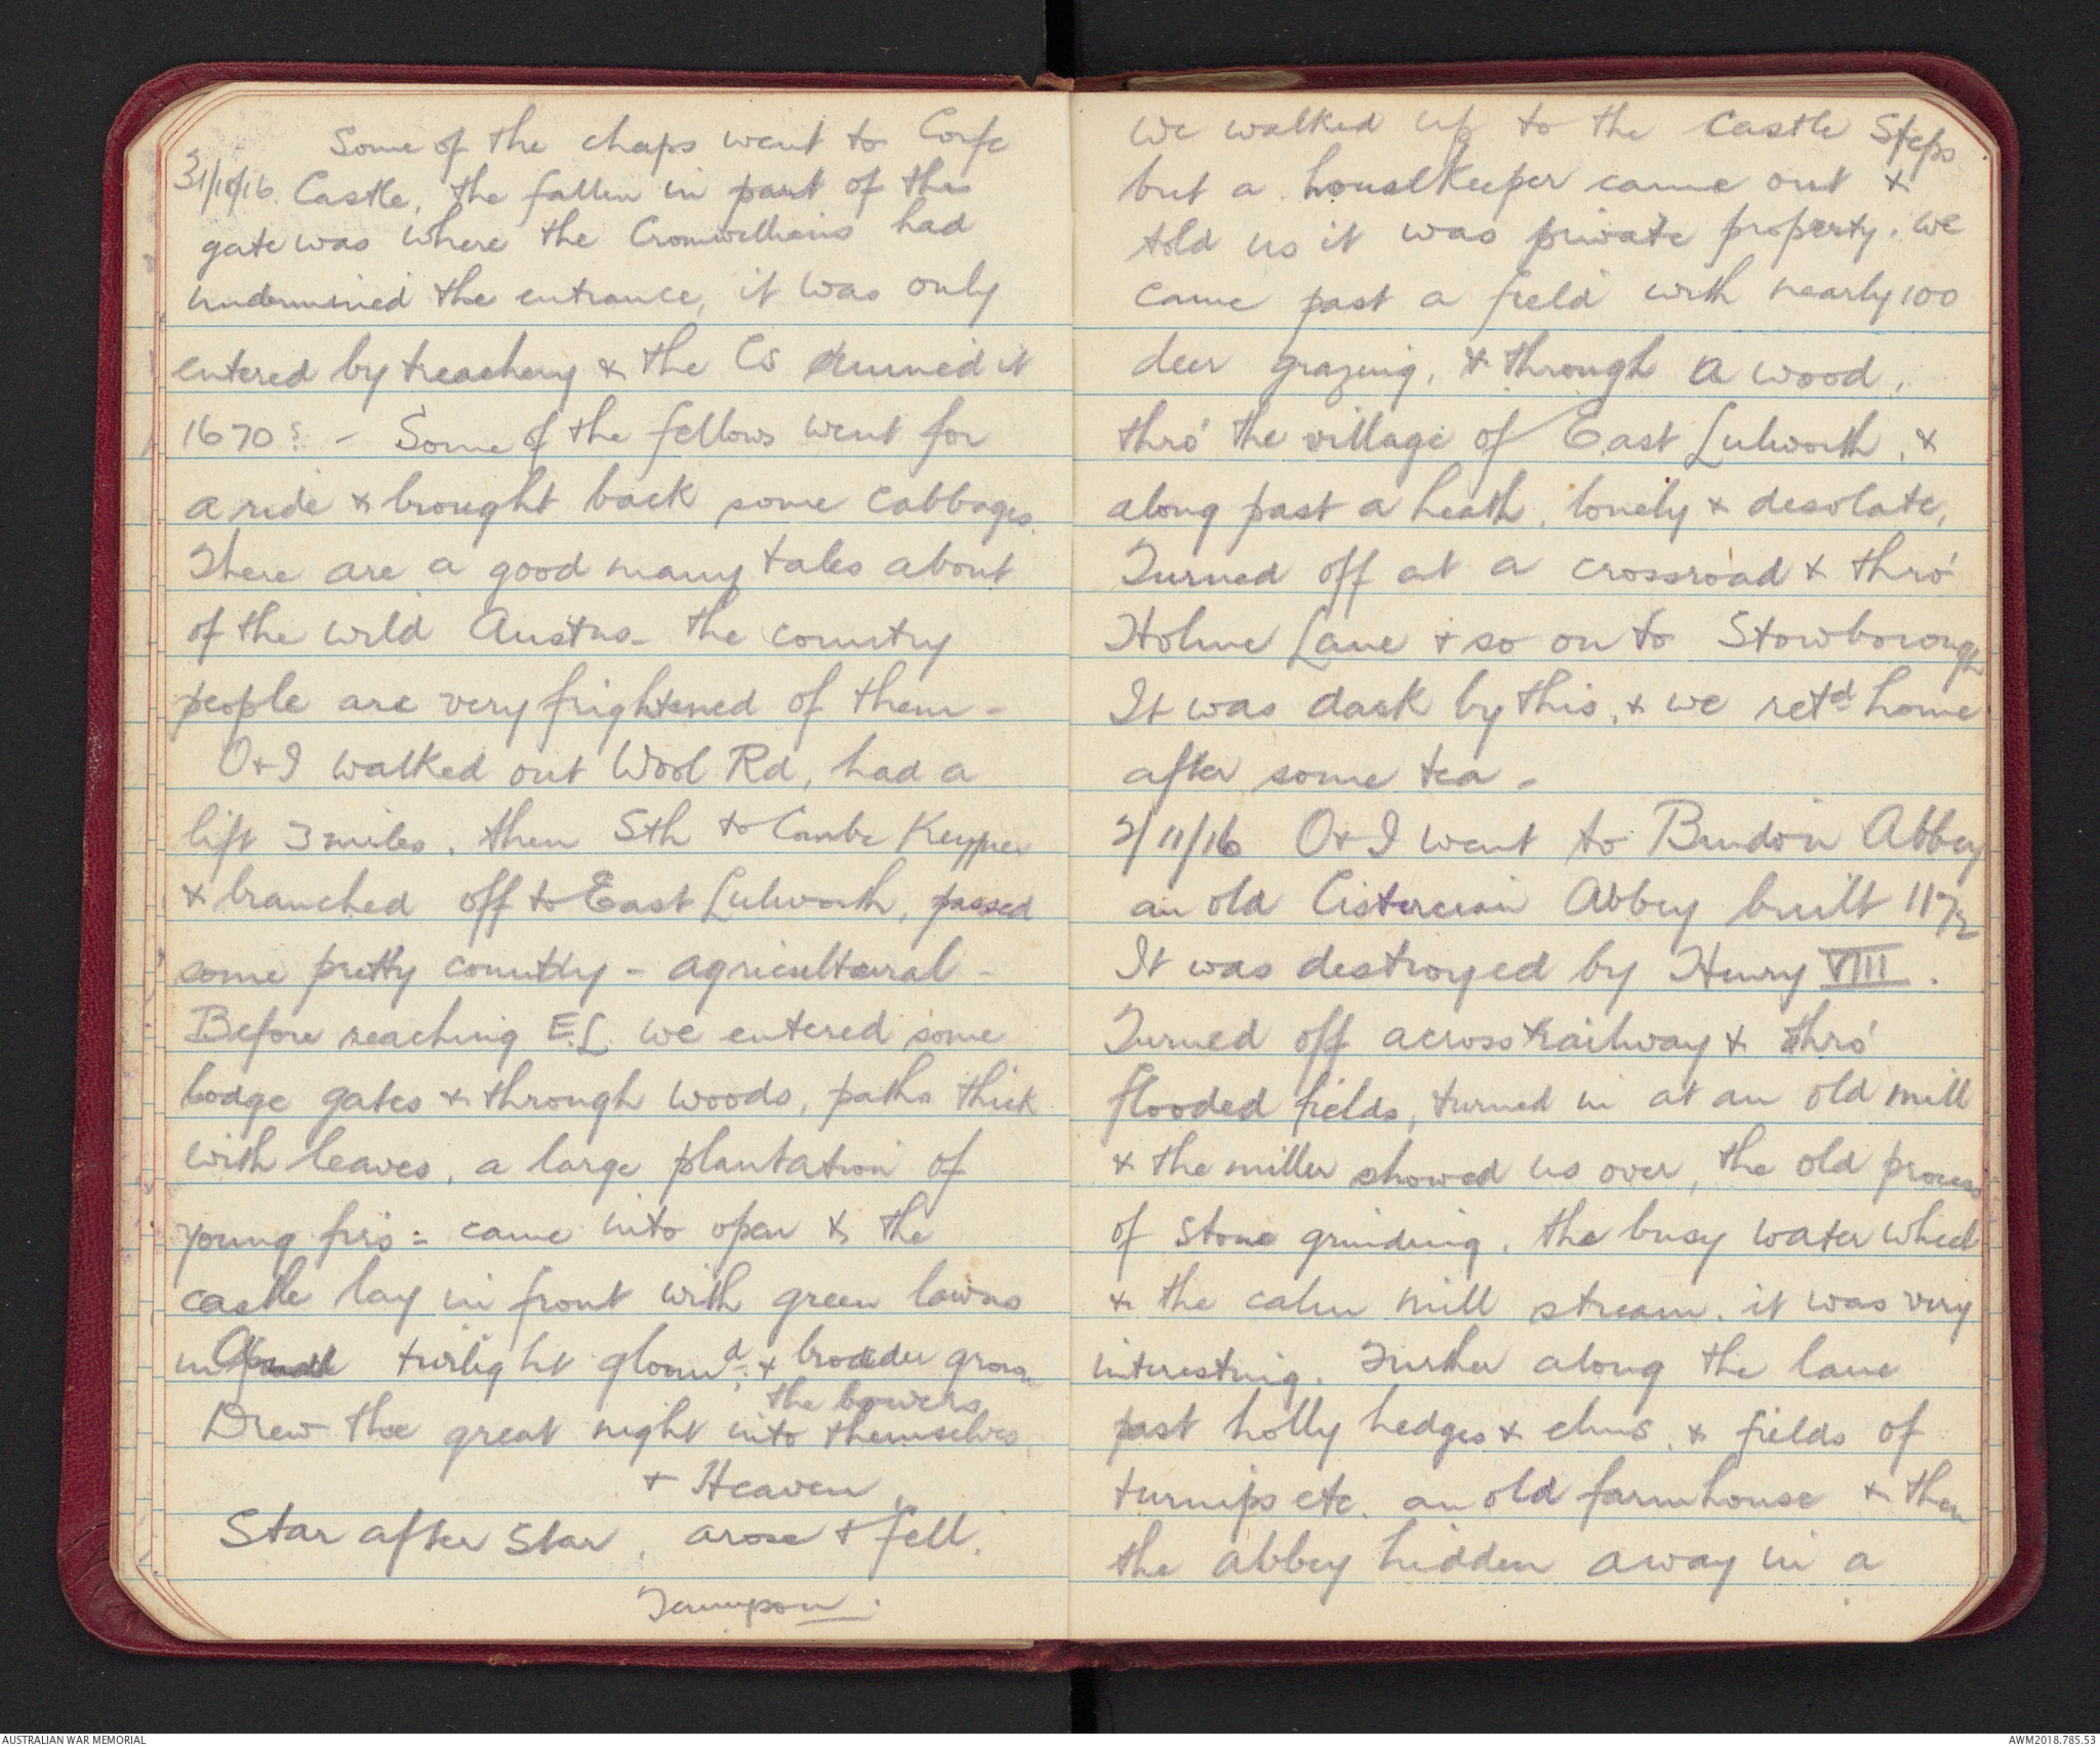 Some of the chaps went to Corfe
31/10/16. Castle, the fallen in part of the
gate was where the Cromwellians had
undermined the entrance, it was only
entered by treachery & the Cs ruined it
1670? - Some of the fellows went for
a ride & brought back some cabbages.
There are a good many tales about
of the wild Austns - the country
people are very frightened of them -
O & I walked out Wool Rd, had a
lift 3 miles, then Sth to Combe Keynes
& branched off to East Lulworth, passed
some pretty country - agricultural -
Before reaching E.L. we entered some
lodge gates & through woods, paths thick
with leaves, a large plantation of
young firs :- came into open & the
castle lay in front with green lawns
in twilight gloomd; & broader grown
the bowers
Drew the great night into themselves
& Heaven,
Star after Star, arose & fell.
Tennyson.
We walked up to the Castle Steps
but a housekeeper came out &
told us it was private property. We
came past a field with nearly 100
deer grazing, & through a wood,
thro' the village of East Lulworth, &
along past a heath, lonely & desolate,
Turned off at a crossroad & thro'
Holme Lane & so on to Stowborough
It was dark by this, & we retd home
after some tea -
2/11/16 O & I went to Bindon Abbey
an old Cistercian Abbey built 1172
It was destroyed by Henry VIII.
Turned off across railway & thro'
flooded fields, turned in at an old mill
& the miller showed us over, the old process
of stone grinding, the busy water wheel
& the calm mill stream. it was very
interesting. Further along the lane
past holly hedges & elms, & fields of
turnips etc. an old farmhouse & then
the abbey hidden away in a
AUSTRALIAN WAR MEMORIAL
AWM2018.785.53